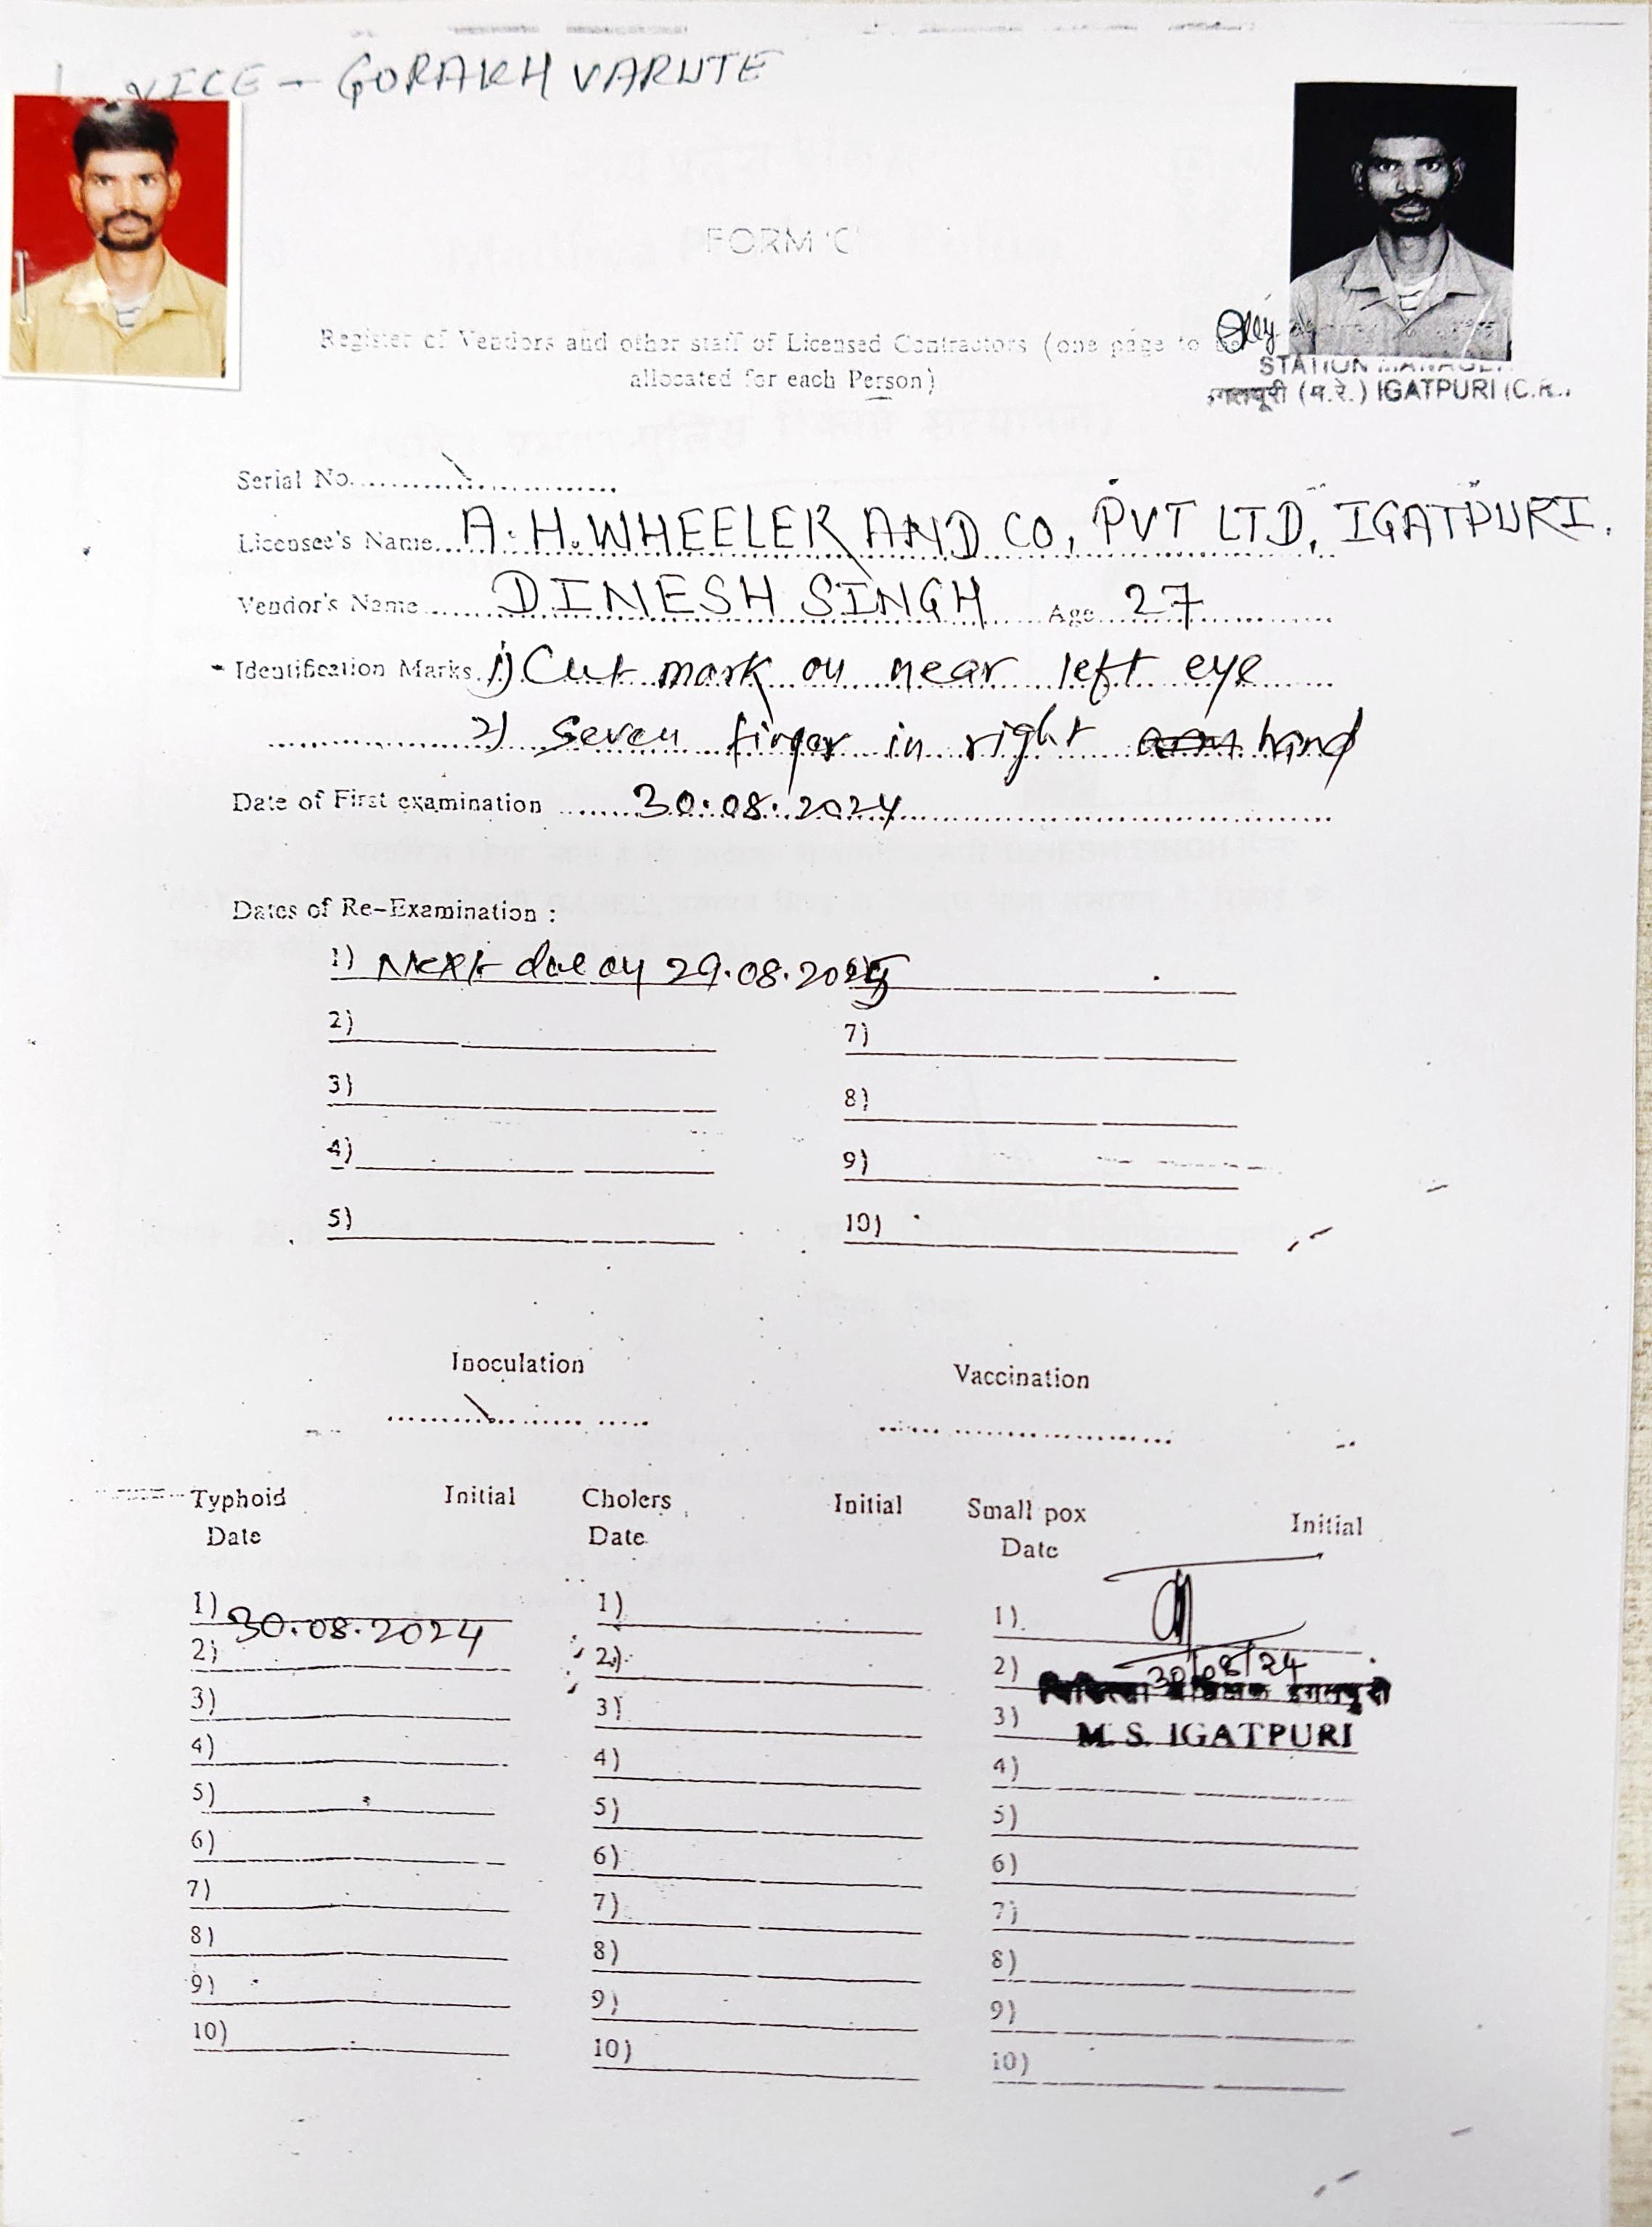 VICE - GORAKH VARUTE
FORM 'C'
Register of Vendors and other staff of Licensed Contractors (one page to be
allocated for each Person)
STATION MANAGER
इगतपूरी (म.रे.) IGATPURI (C.R.,
Serial No.
Licensee's Name A. H. WHEELER AND CO, PVT LTD, IGATPURI.
Vendor's Name DINESH SINGH Age 27
Identification Marks. 1) Cut mark on near left eye
2) Seven finger in right hand
Date of First examination 30.08.2024
Dates of Re-Examination :
1) Next due on 29.08.2025
2) 7)
3) 8)
4) 9)
5) 10)
Inoculation Vaccination
Typhoid Initial Cholers Initial Small pox Initial
Date Date Date
1) 30.08.2024 1) 1)
2) 2) 2) 30/08/24
3) 3) 3) M. S. IGATPURI
4) 4) 4)
5) 5) 5)
6) 6) 6)
7) 7) 7)
8) 8) 8)
9) 9) 9)
10) 10) 10)